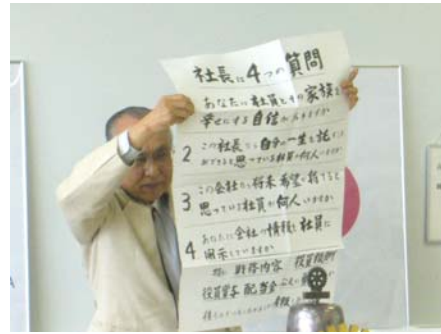 社長に4つの質問
あなたに社員とその家族を
幸せにする自信がありますか
2 この社長なら自分の一生を託す
ができると思っている社員が何人いますか
3 この会社なら将来希望が持てると
思っている社員が何人いますか
4. あなたは会社の情報を社員に
開示していますか
特に 財務内容 役員報酬
役員賞与 配当金